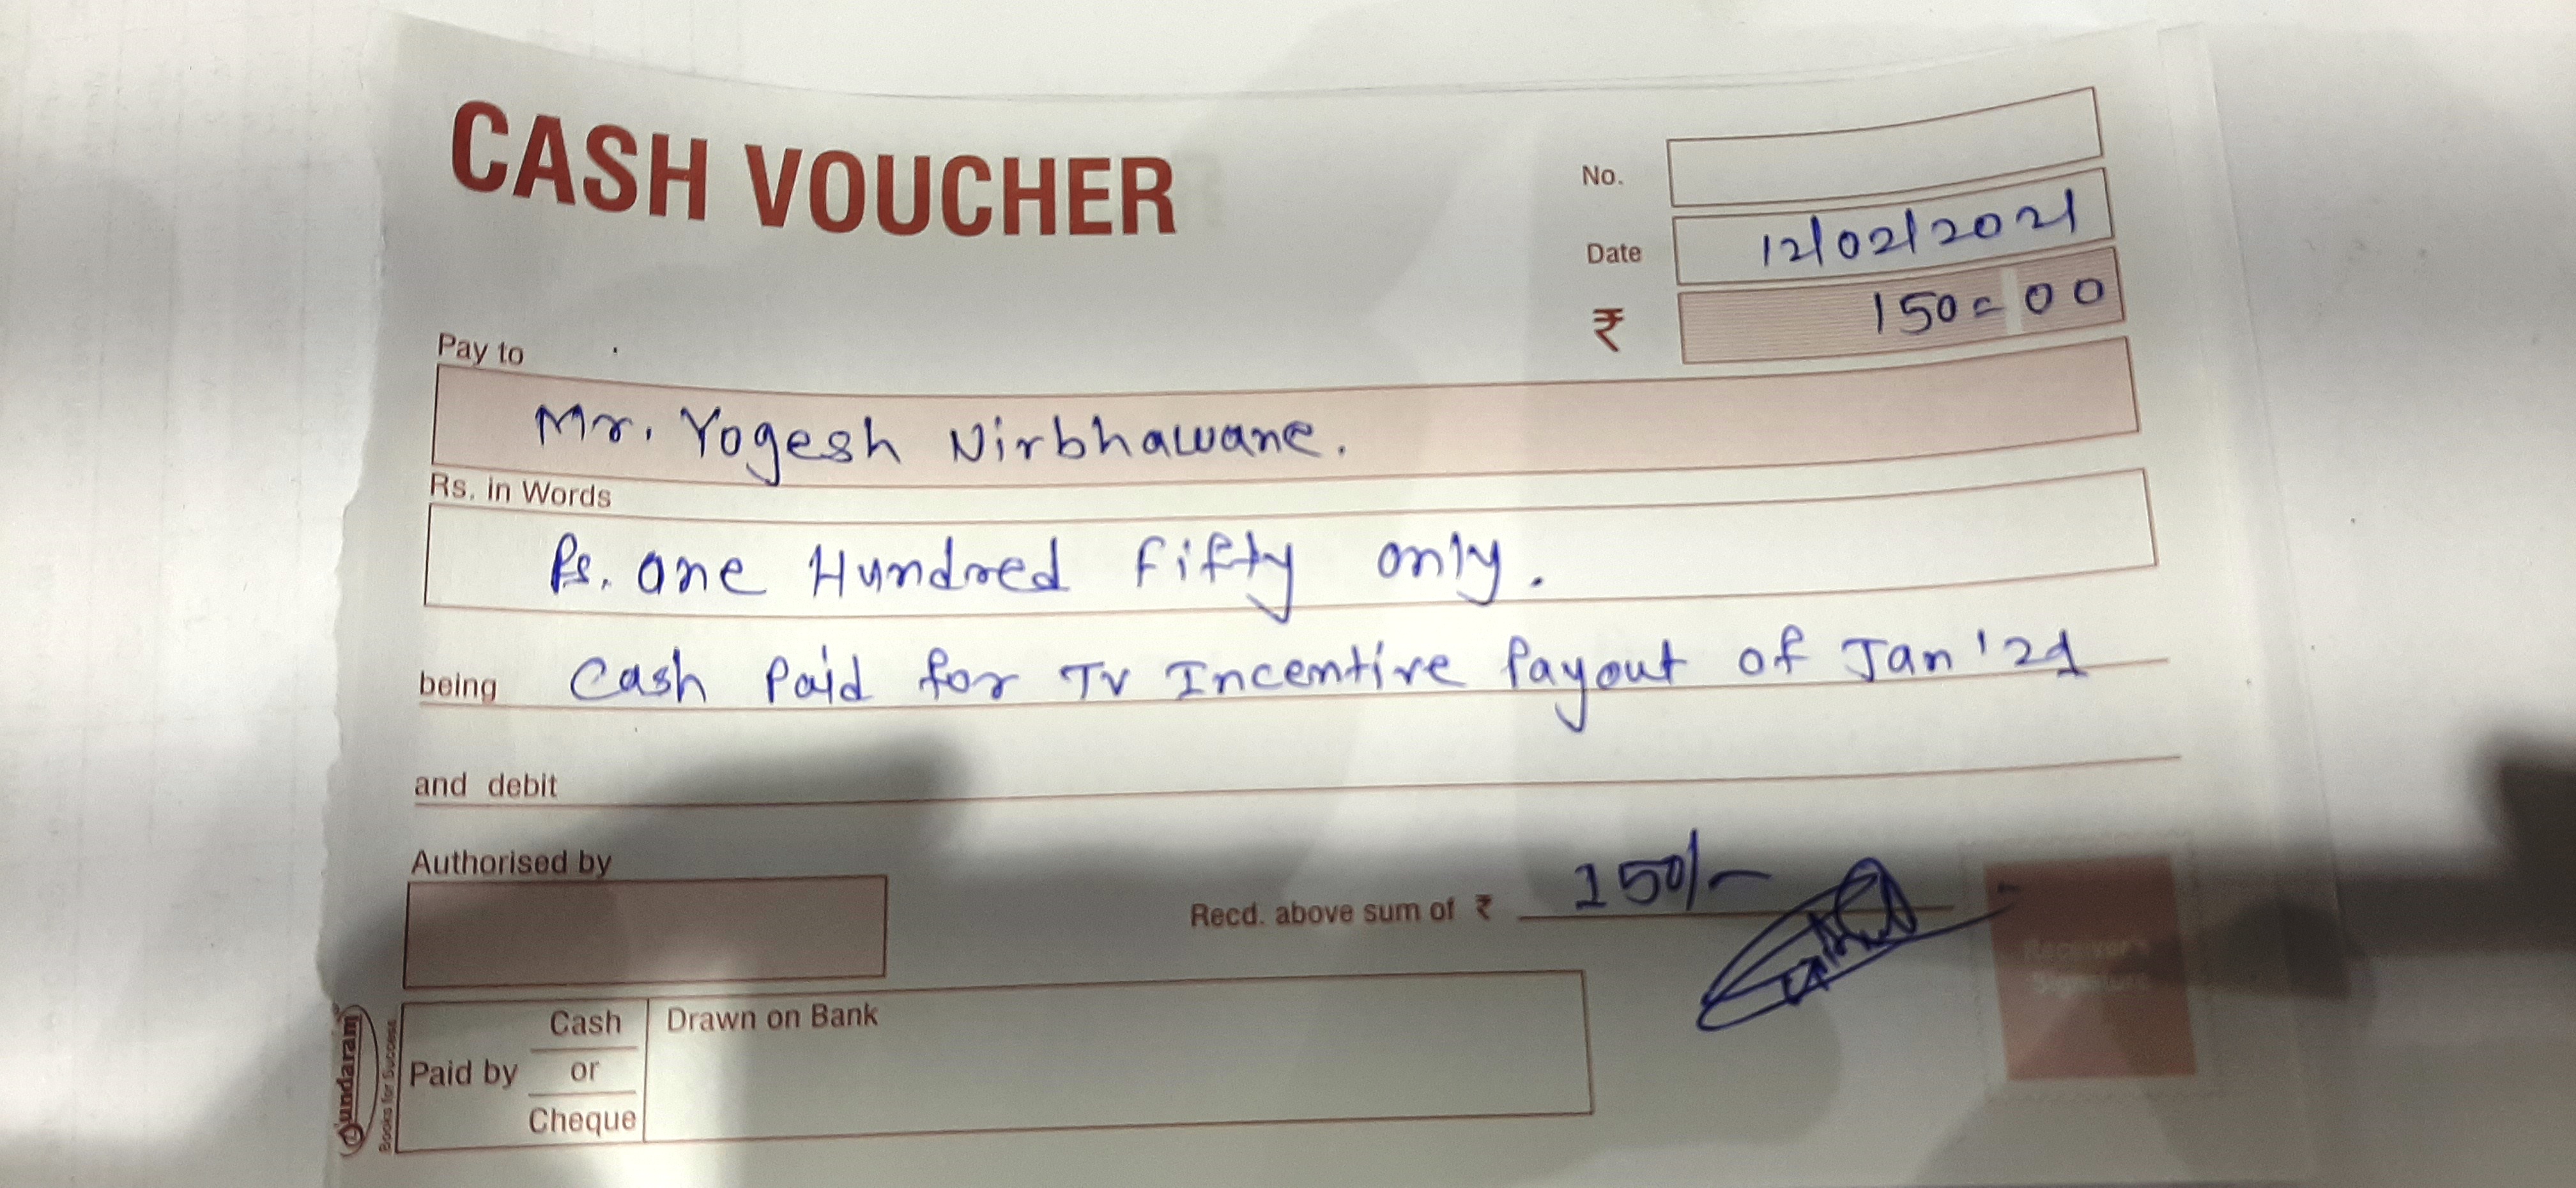 CASH VOUCHER
No.
Date 12/02/2021
₹ 150=00
Pay to
Mr. Yogesh Nirbhawane.
Rs. in Words
Rs. One Hundred Fifty only.
being Cash Paid for TV Incentive Payout of Jan '21
and debit
Authorised by
Recd. above sum of ₹ 150/-
Receiver's
Signature
Paid by Cash or Cheque
Drawn on Bank
Sundaram
Books for Success